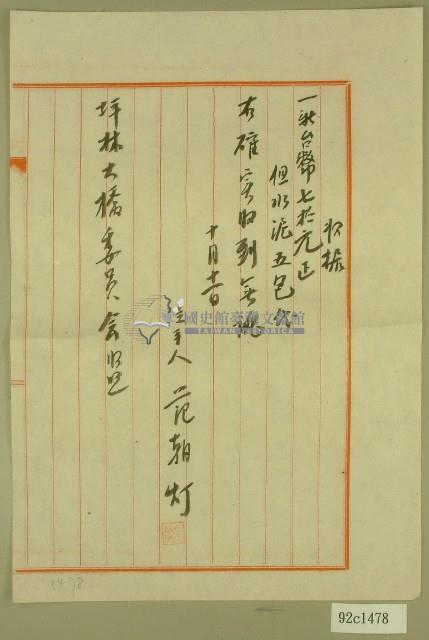 收據
一新台幣七拾元正
但水泥五包代
右確実收到無訛
十月十日
経手人 范朝灯
坪林大橋委員会照
國史館臺灣文獻館
TAIWAN HISTORICA
1478
92c1478